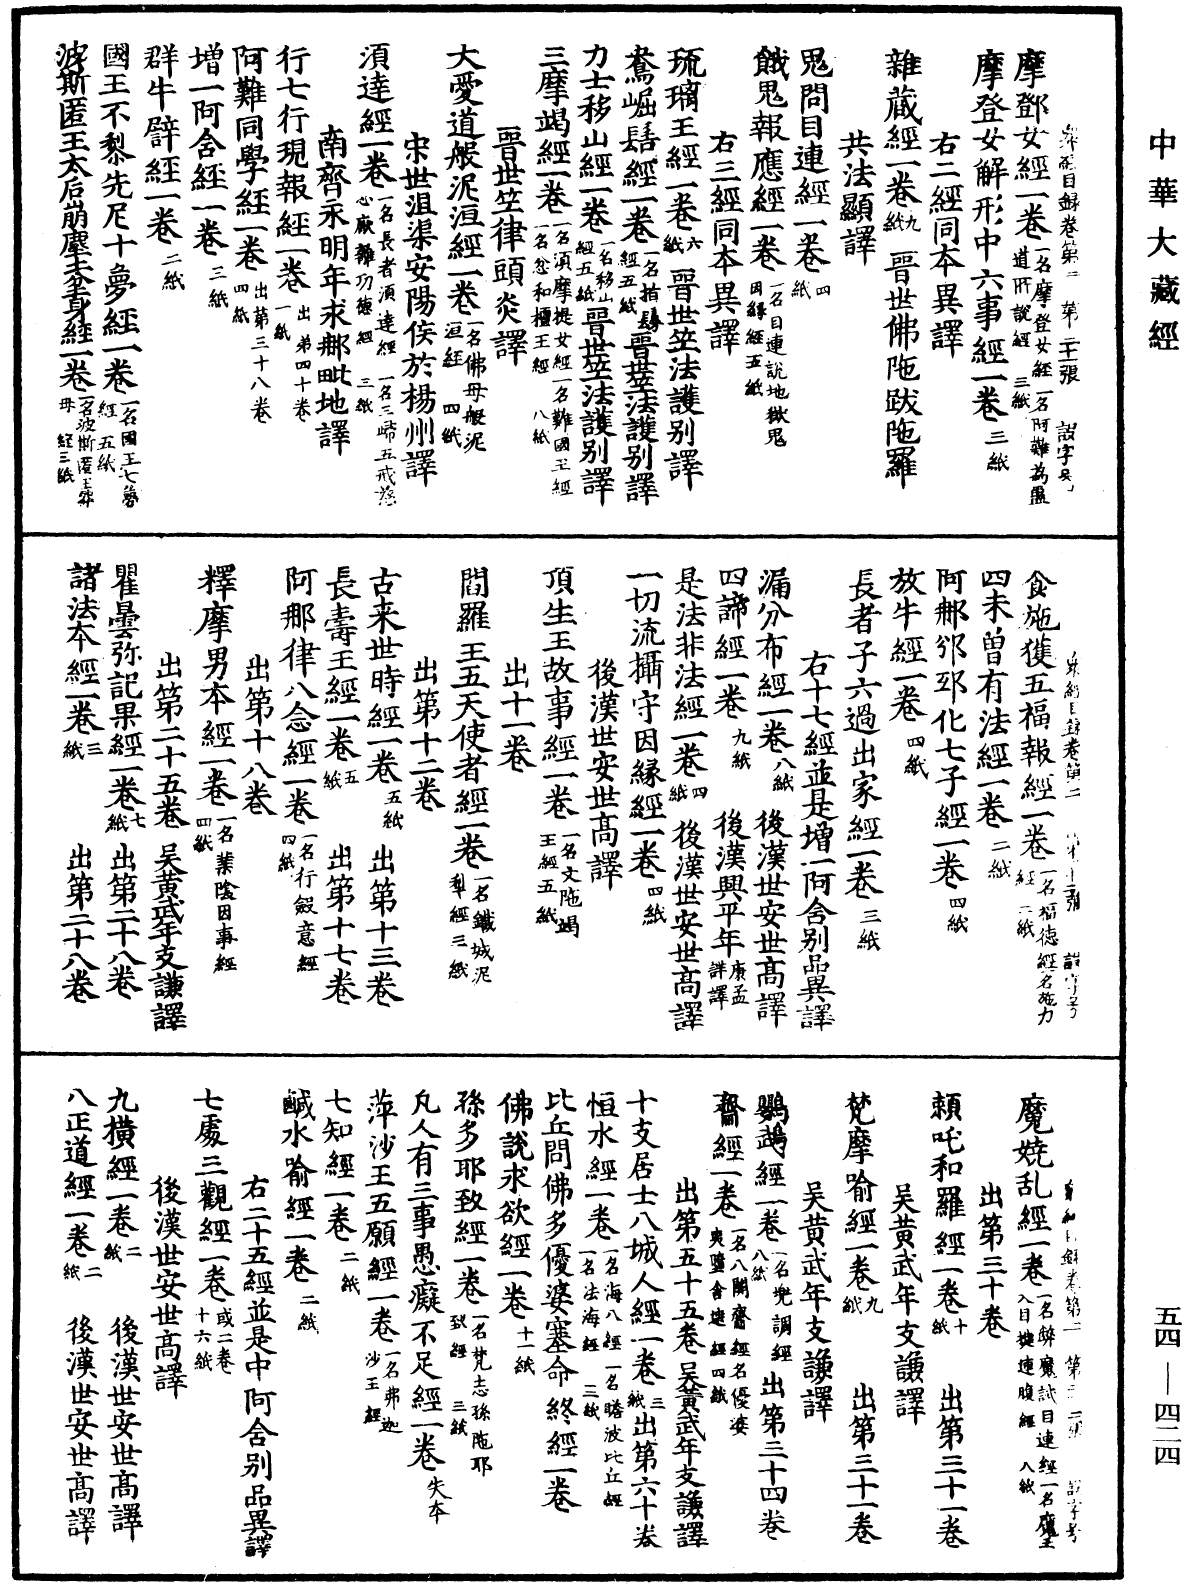 中華大藏經
摩鄧女經一卷 一名摩登女經一名阿難為蠱道所說經 三紙
摩登女解形中六事經一卷 三紙
右二經同本異譯
雜藏經一卷 九紙 晉世佛陁跋陁羅
共法顯譯
鬼問目連經一卷 四紙
餓鬼報應經一卷 一名目連說地獄鬼因緣經五紙
右三經同本異譯
琉璃王經一卷 六紙 晉世竺法護別譯
鴦崛髻經一卷 一名指鬘經五紙 晉世竺法護別譯
力士移山經一卷 一名移山經五紙 晉世竺法護別譯
三摩竭經一卷 一名須摩提女經一名難國王經一名忿和檀王經 八紙
晉世竺律頭炎譯
大愛道般泥洹經一卷 一名佛母般泥洹經 四紙
宋世沮渠安陽侯於楊州譯
須達經一卷 一名長者須達經 一名三歸五戒慈心厭離功德經 三紙
南齊永明年求那毗地譯
行七行現報經一卷 出第四十卷 一紙
阿難同學經一卷 出第三十八卷 四紙
增一阿含經一卷 三紙
群牛譬經一卷 二紙
國王不黎先尼十夢經一卷 一名國王七夢經 五紙
波斯匿王太后崩塵坌身經一卷 一名波斯匿王喪母經三紙
食施獲五福報經一卷 一名福德經名施力經 二紙
四未曾有法經一卷 二紙
阿那邠邸化七子經一卷 四紙
放牛經一卷 四紙
長者子六過出家經一卷 三紙
右十七經並是增一阿含別品異譯
漏分布經一卷 八紙 後漢世安世高譯
四諦經一卷 九紙 後漢興平年康孟詳譯
是法非法經一卷 四紙 後漢世安世高譯
一切流攝守因緣經一卷 四紙
後漢世安世高譯
頂生王故事經一卷 一名文陁竭王經五紙
出十一卷
閻羅王五天使者經一卷 一名鐵城泥犁經三紙
出第十二卷
古来世時經一卷 五紙 出第十三卷
長壽王經一卷 五紙 出第十七卷
阿那律八念經一卷 一名行斂意經 四紙
出第十八卷
釋摩男本經一卷 一名業陰因事經 四紙
出第二十五卷 吴黄武年支謙譯
瞿曇弥記果經一卷 七紙 出第二十八卷
諸法本經一卷 三紙 出第二十八卷
魔嬈乱經一卷 一名弊魔試目連經一名魔王入目揵連腹經 八紙
出第三十卷
頼吒和羅經一卷 十紙 出第三十一卷
吴黄武年支謙譯
梵摩喻經一卷 九紙 出第三十一卷
吴黄武年支謙譯
鸚鵡經一卷 一名兜調經 八紙 出第三十四卷
齋經一卷 一名八關齋經名優婆夷墮舍迦經四紙
出第五十五卷 吴黄武年支謙譯
十支居士八城人經一卷 三紙 出第六十卷
恒水經一卷 一名海八經一名瞻波比丘經一名法海經 三紙
比丘問佛多優婆塞命終經一卷
佛說求欲經一卷 十一紙
孫多耶致經一卷 一名梵志孫陁耶致經 三紙
凡人有三事愚癡不足經一卷 失本
萍沙王五願經一卷 一名弗迦沙王經
七知經一卷 二紙
鹹水喻經一卷 二紙
右二十五經並是中阿含別品異譯
七處三觀經一卷 或二卷十六紙
後漢世安世高譯
九横經一卷 二紙 後漢世安世高譯
八正道經一卷 二紙 後漢世安世高譯
五四—四二四